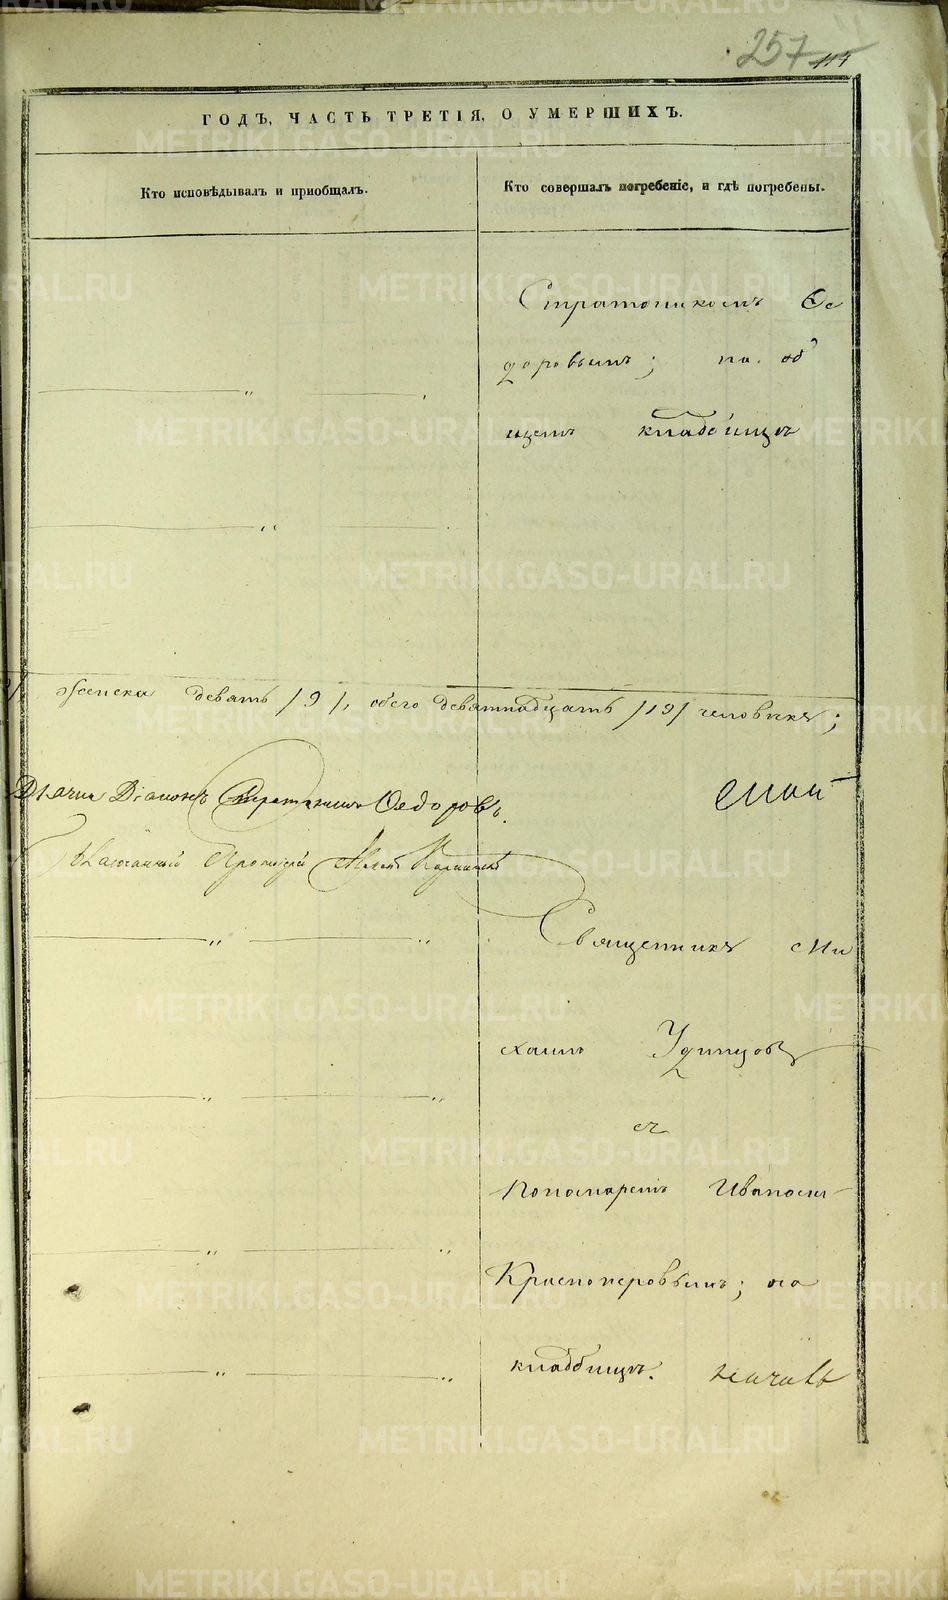 257
ГОДЪ, ЧАСТЬ ТРЕТІЯ, О УМЕРШИХЪ.
Кто исповѣдывалъ и приобщалъ.
Кто совершалъ погребеніе, и гдѣ погребены.
Стратоникомъ Ѳе
доровымъ; на об
щемъ кладбищѣ
женска девять /9/, обего девятнадцать /19/ человѣкъ;
Діаконъ Стратоникъ Ѳедоровъ.
Май
Протоіерей
Священникъ Ми
хаилъ Удинцовъ
съ
Пономаремъ Иваномъ
Красноперовымъ; на
кладбищѣ.
METRIKI.GASO-URAL.RU